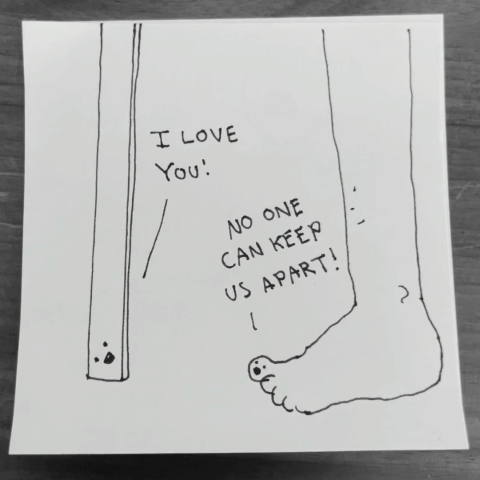 I LOVE
YOU!
NO ONE
CAN KEEP
US APART!